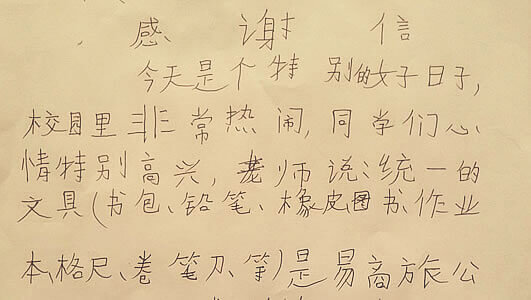 感谢信
今天是个特别的好日子,
校园里非常热闹,同学们心
情特别高兴,老师说:统一的
文具(书包、铅笔、橡皮、图书、作业
本、格尺、卷笔刀、等)是易商旅公